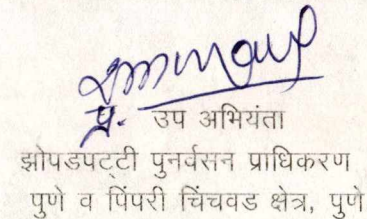 प्र. उप अभियंता
झोपडपट्टी पुनर्वसन प्राधिकरण
पुणे व पिंपरी चिंचवड क्षेत्र, पुणे